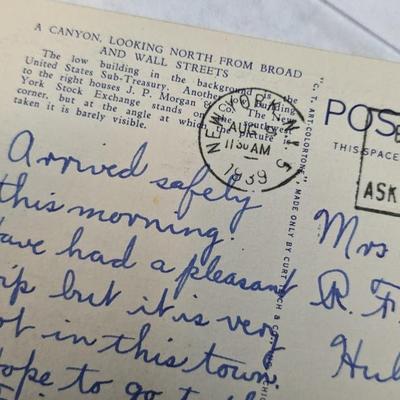 A CANYON, LOOKING NORTH FROM BROAD
AND WALL STREETS
The low building in the background is the
United States Sub-Treasury. Another low building
to the right houses J. P. Morgan & Co. The New
York Stock Exchange stands on the southwest
corner, but at the angle at which the picture is
taken it is barely visible.
NEW YORK, N.Y.
AUG
11 30 AM
1939
"C. T. ART-COLORTONE" MADE ONLY BY CURT TEICH & CO.
POS
THIS SPACE
ASK
Arrived safely
this morning.
Have had a pleasant
trip but it is very
hot in this town.
Hope to go to th
Mrs
R. F.
Hul